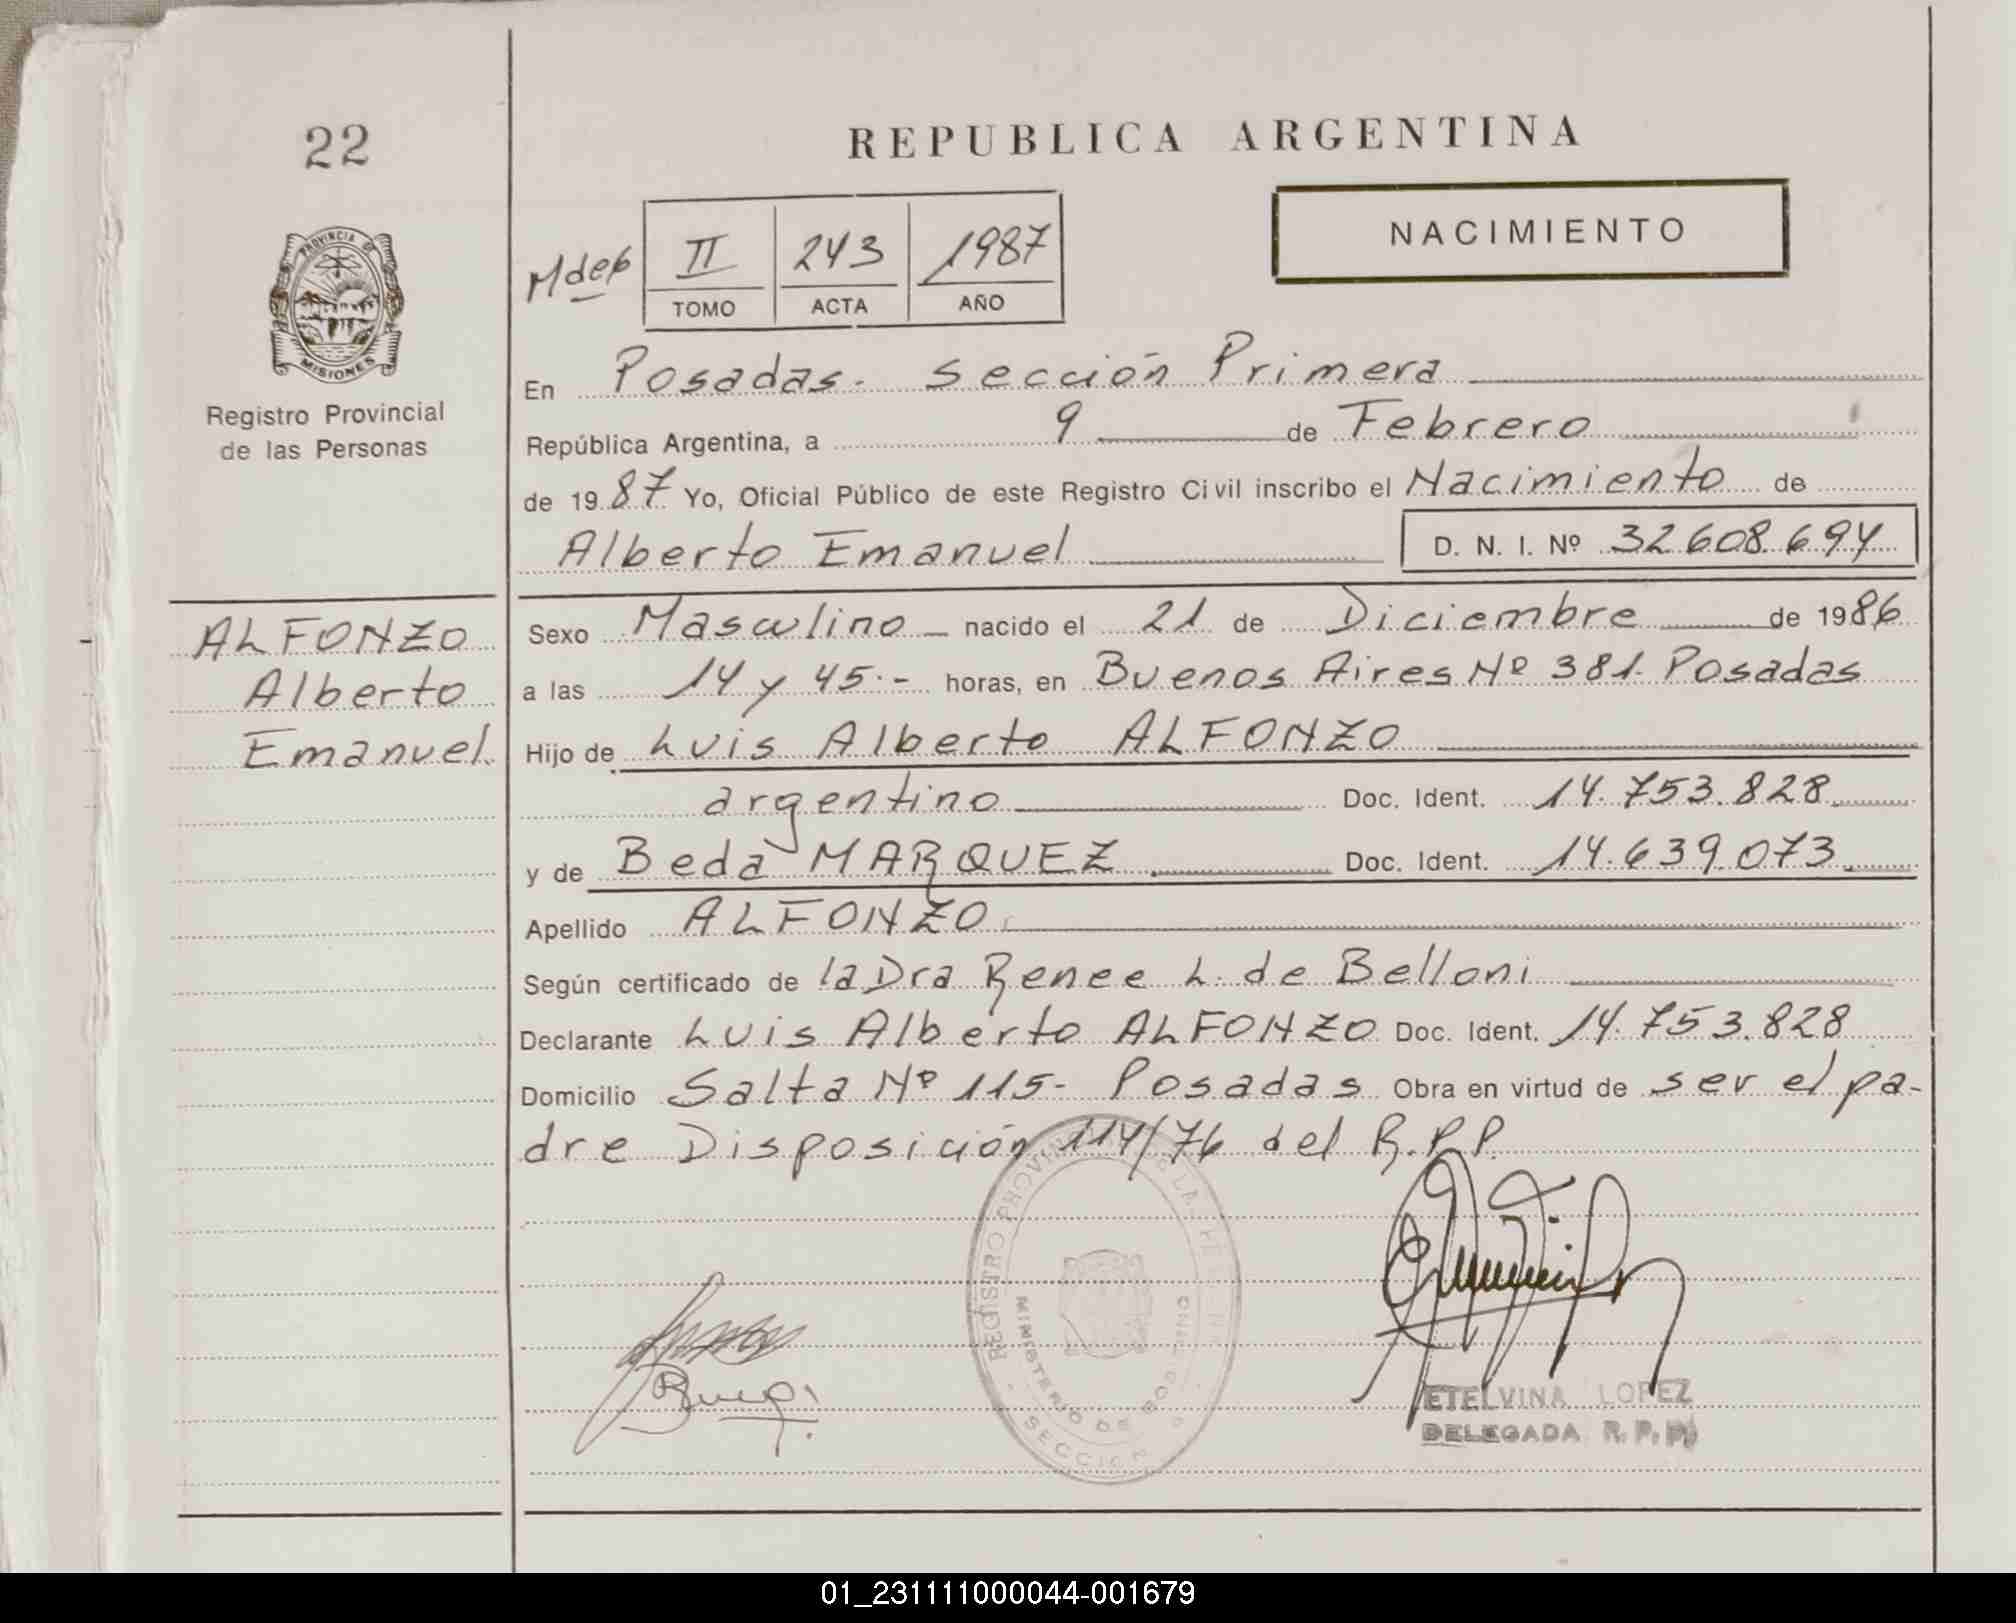 22
REPUBLICA ARGENTINA
NACIMIENTO
II 243 1987
TOMO ACTA AÑO
PROVINCIA DE
MISIONES
Registro Provincial
de las Personas
En Posadas. Sección Primera
República Argentina, a 9 de Febrero
de 1987 Yo, Oficial Público de este Registro Civil inscribo el Nacimiento de
Alberto Emanuel D. N. I. Nº 32.608.694
ALFONZO
Alberto
Emanuel.
Sexo Masculino nacido el 21 de Diciembre de 1986
a las 14 y 45.- horas, en Buenos Aires Nº 381. Posadas
Hijo de Luis Alberto ALFONZO
argentino Doc. Ident. 14.753.828
y de Beda MARQUEZ Doc. Ident. 14.639.073
Apellido ALFONZO
Según certificado de la Dra Renee L. de Belloni
Declarante Luis Alberto ALFONZO Doc. Ident. 14.753.828
Domicilio Salta Nº 115- Posadas Obra en virtud de ser el pa-
dre Disposición 114/76 del R.P.P.
REGISTRO PROVINCIAL DE LAS PERSONAS
MINISTERIO DE GOBIERNO
SECCION
ETELVINA LOPEZ
DELEGADA R. P. P.
01_231111000044-001679